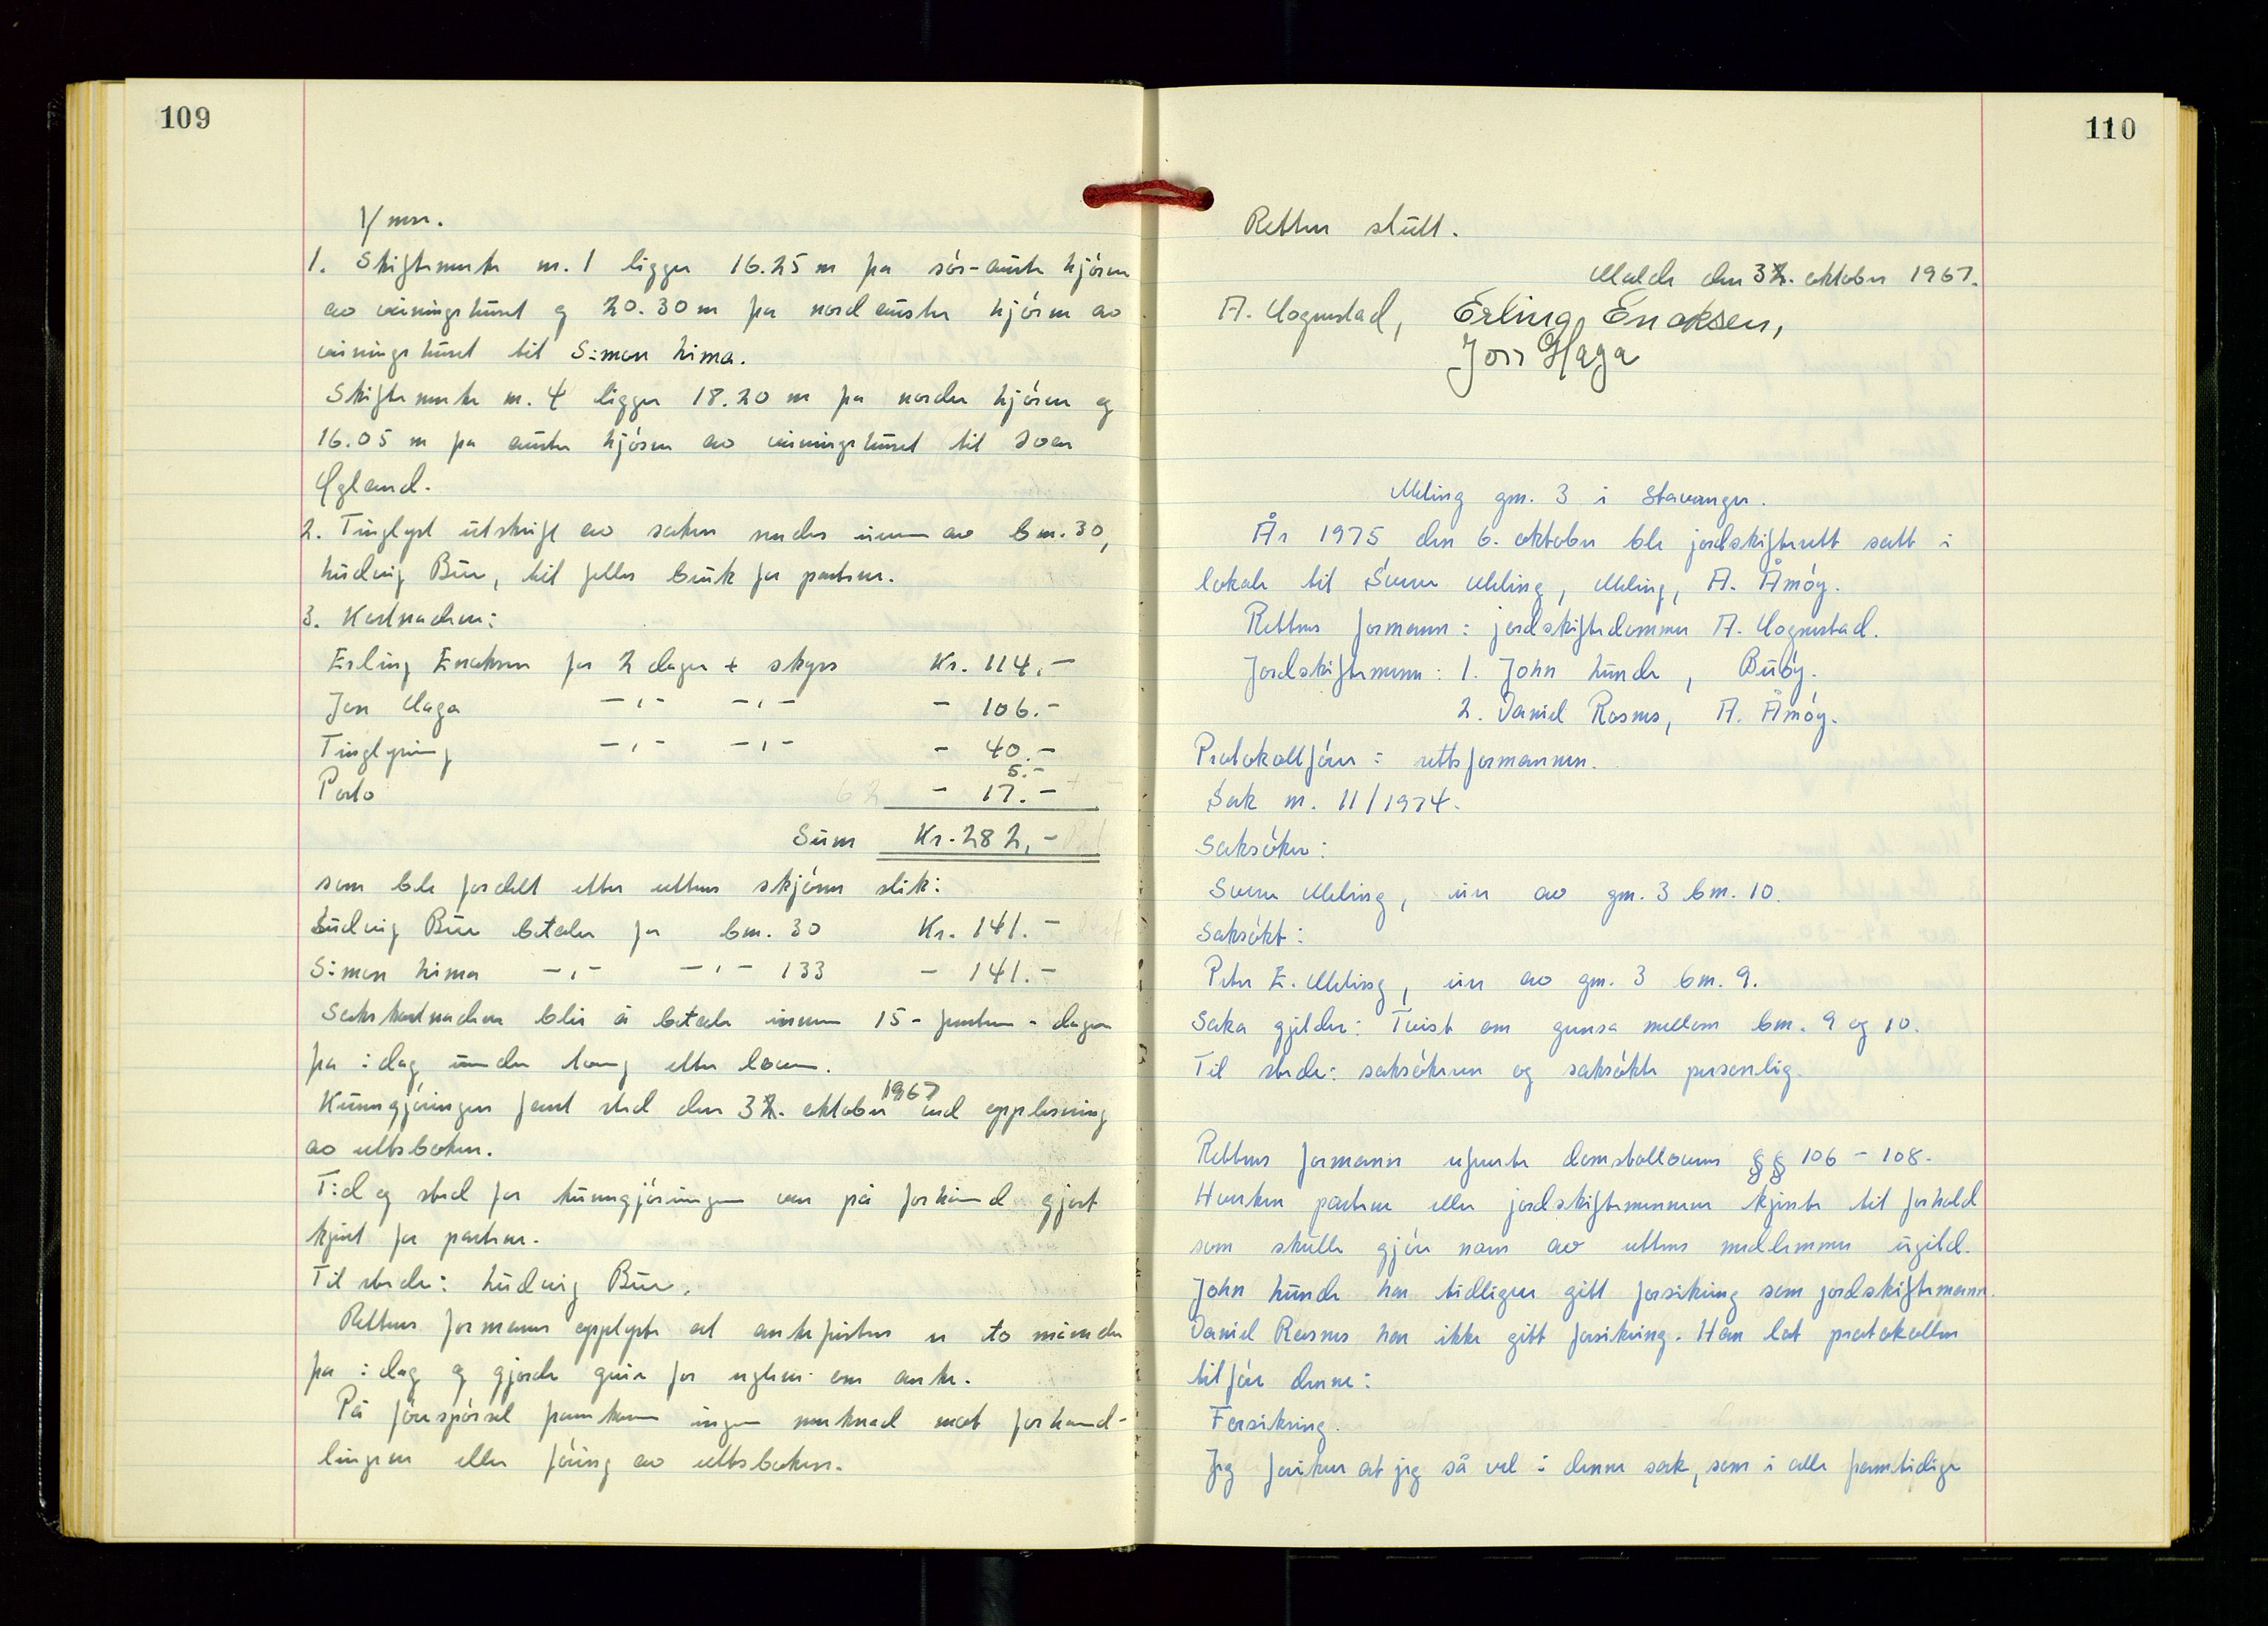 109
V/mrn.
1. Skiftemerke nr. 1 ligger 16.25 m fra sør-austre hjørne
av våningshuset og 20.30 m fra nordaustre hjørne av
våningshuset til Simon Lima.
Skiftemerke nr. 4 ligger 18.20 m fra nordre hjørne og
16.05 m fra austre hjørne av våningshuset til Sven
Øgland.
2. Tinglyst utskrift av saken sendes eieren av bnr. 30,
Ludvig Bue, til felles bruk for partene.
3. Kostnadene:
Erling Enoksen for 2 dager + skyss Kr. 114.-
Jon Haga -,- -,- - 106.-
Tinglysing -,- -,- - 40.-
5.-
Porto - 17.-
Sum Kr. 282,-
som ble fordelt etter rettens skjønn slik:
Ludvig Bue betaler for bnr. 30 Kr. 141.-
Simon Lima -,- -,- 133 - 141.-
Sakskostnadene blir å betale innen 15 - femten - dager
fra i dag under tvang etter loven.
1967
Kunngjøringen fant sted den 31. oktober ved opplesning
av rettsboken.
Tid og sted for kunngjøringen var på forhånd gjort
kjent for partene.
Til stede: Ludvig Bue.
Rettens formann opplyste at ankefristen er to måneder
fra i dag og gjorde greie for reglene om anke.
På forespørsel framkom ingen merknad mot forhand-
lingene eller føring av rettsboken.
110
Retten slutt.
Malde den 31. oktober 1967.
A. Hognestad, Erling Enoksen,
Jon Haga
Meling gnr. 3 i Stavanger.
År 1975 den 6. oktober ble jordskifterett satt i
lokale til Sverre Meling, Meling, A. Åmøy.
Rettens formann: jordskiftedommer A. Hognestad.
Jordskiftemenn: 1. John Lunde, Buøy.
2. Daniel Rosnes, A. Åmøy.
Protokollfører: rettsformannen.
Sak nr. 11/1974.
Saksøker:
Sverre Meling, eier av gnr. 3 bnr. 10.
Saksøkt:
Peter E. Meling, eier av gnr. 3 bnr. 9.
Saka gjelder: Tvist om grensa mellom bnr. 9 og 10.
Til stede: saksøkeren og saksøkte personlig.
Rettens formann refererte domstollovens §§ 106 - 108.
Hverken partene eller jordskiftemennene kjente til forhold
som skulle gjøre noen av rettens medlemmer ugild.
John Lunde har tidligere gitt forsikring som jordskiftemann.
Daniel Rosnes har ikke gitt forsikring. Han lot protokollen
tilføre denne:
Forsikring.
Jeg forsikrer at jeg så vel i denne sak, som i alle framtidige